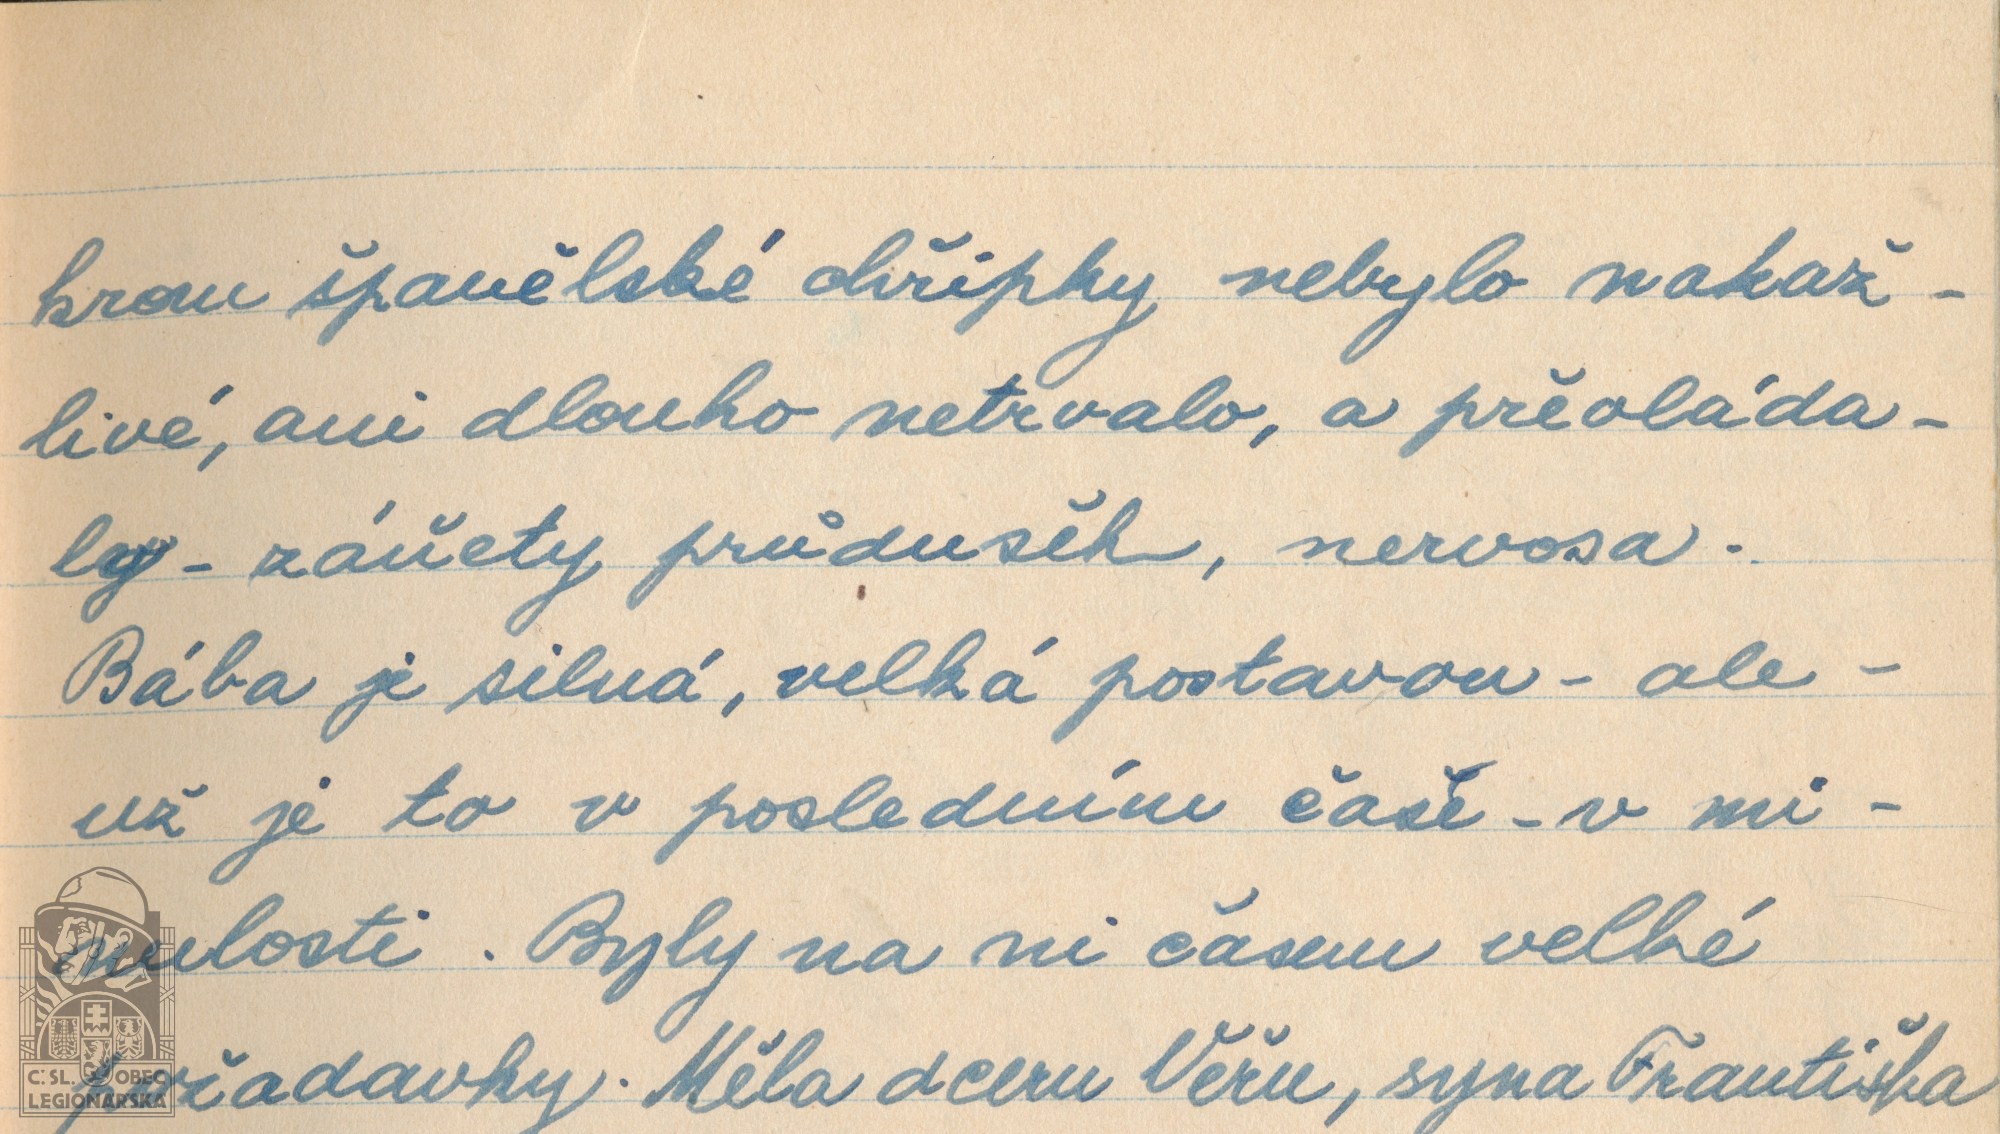 krom španělské chřipky nebylo nakaž-
livé, ani dlouho netrvalo, a převláda-
ly - záněty průdušek, nervosa.
Bába je silná, velká postavou - ale -
už je to v posledním čase - v mi-
nulosti. Byly na ni časem velké
požadavky. Měla dceru Věru, syna Františka
Č: SL. OBEC
LEGIONÁŘSKÁ